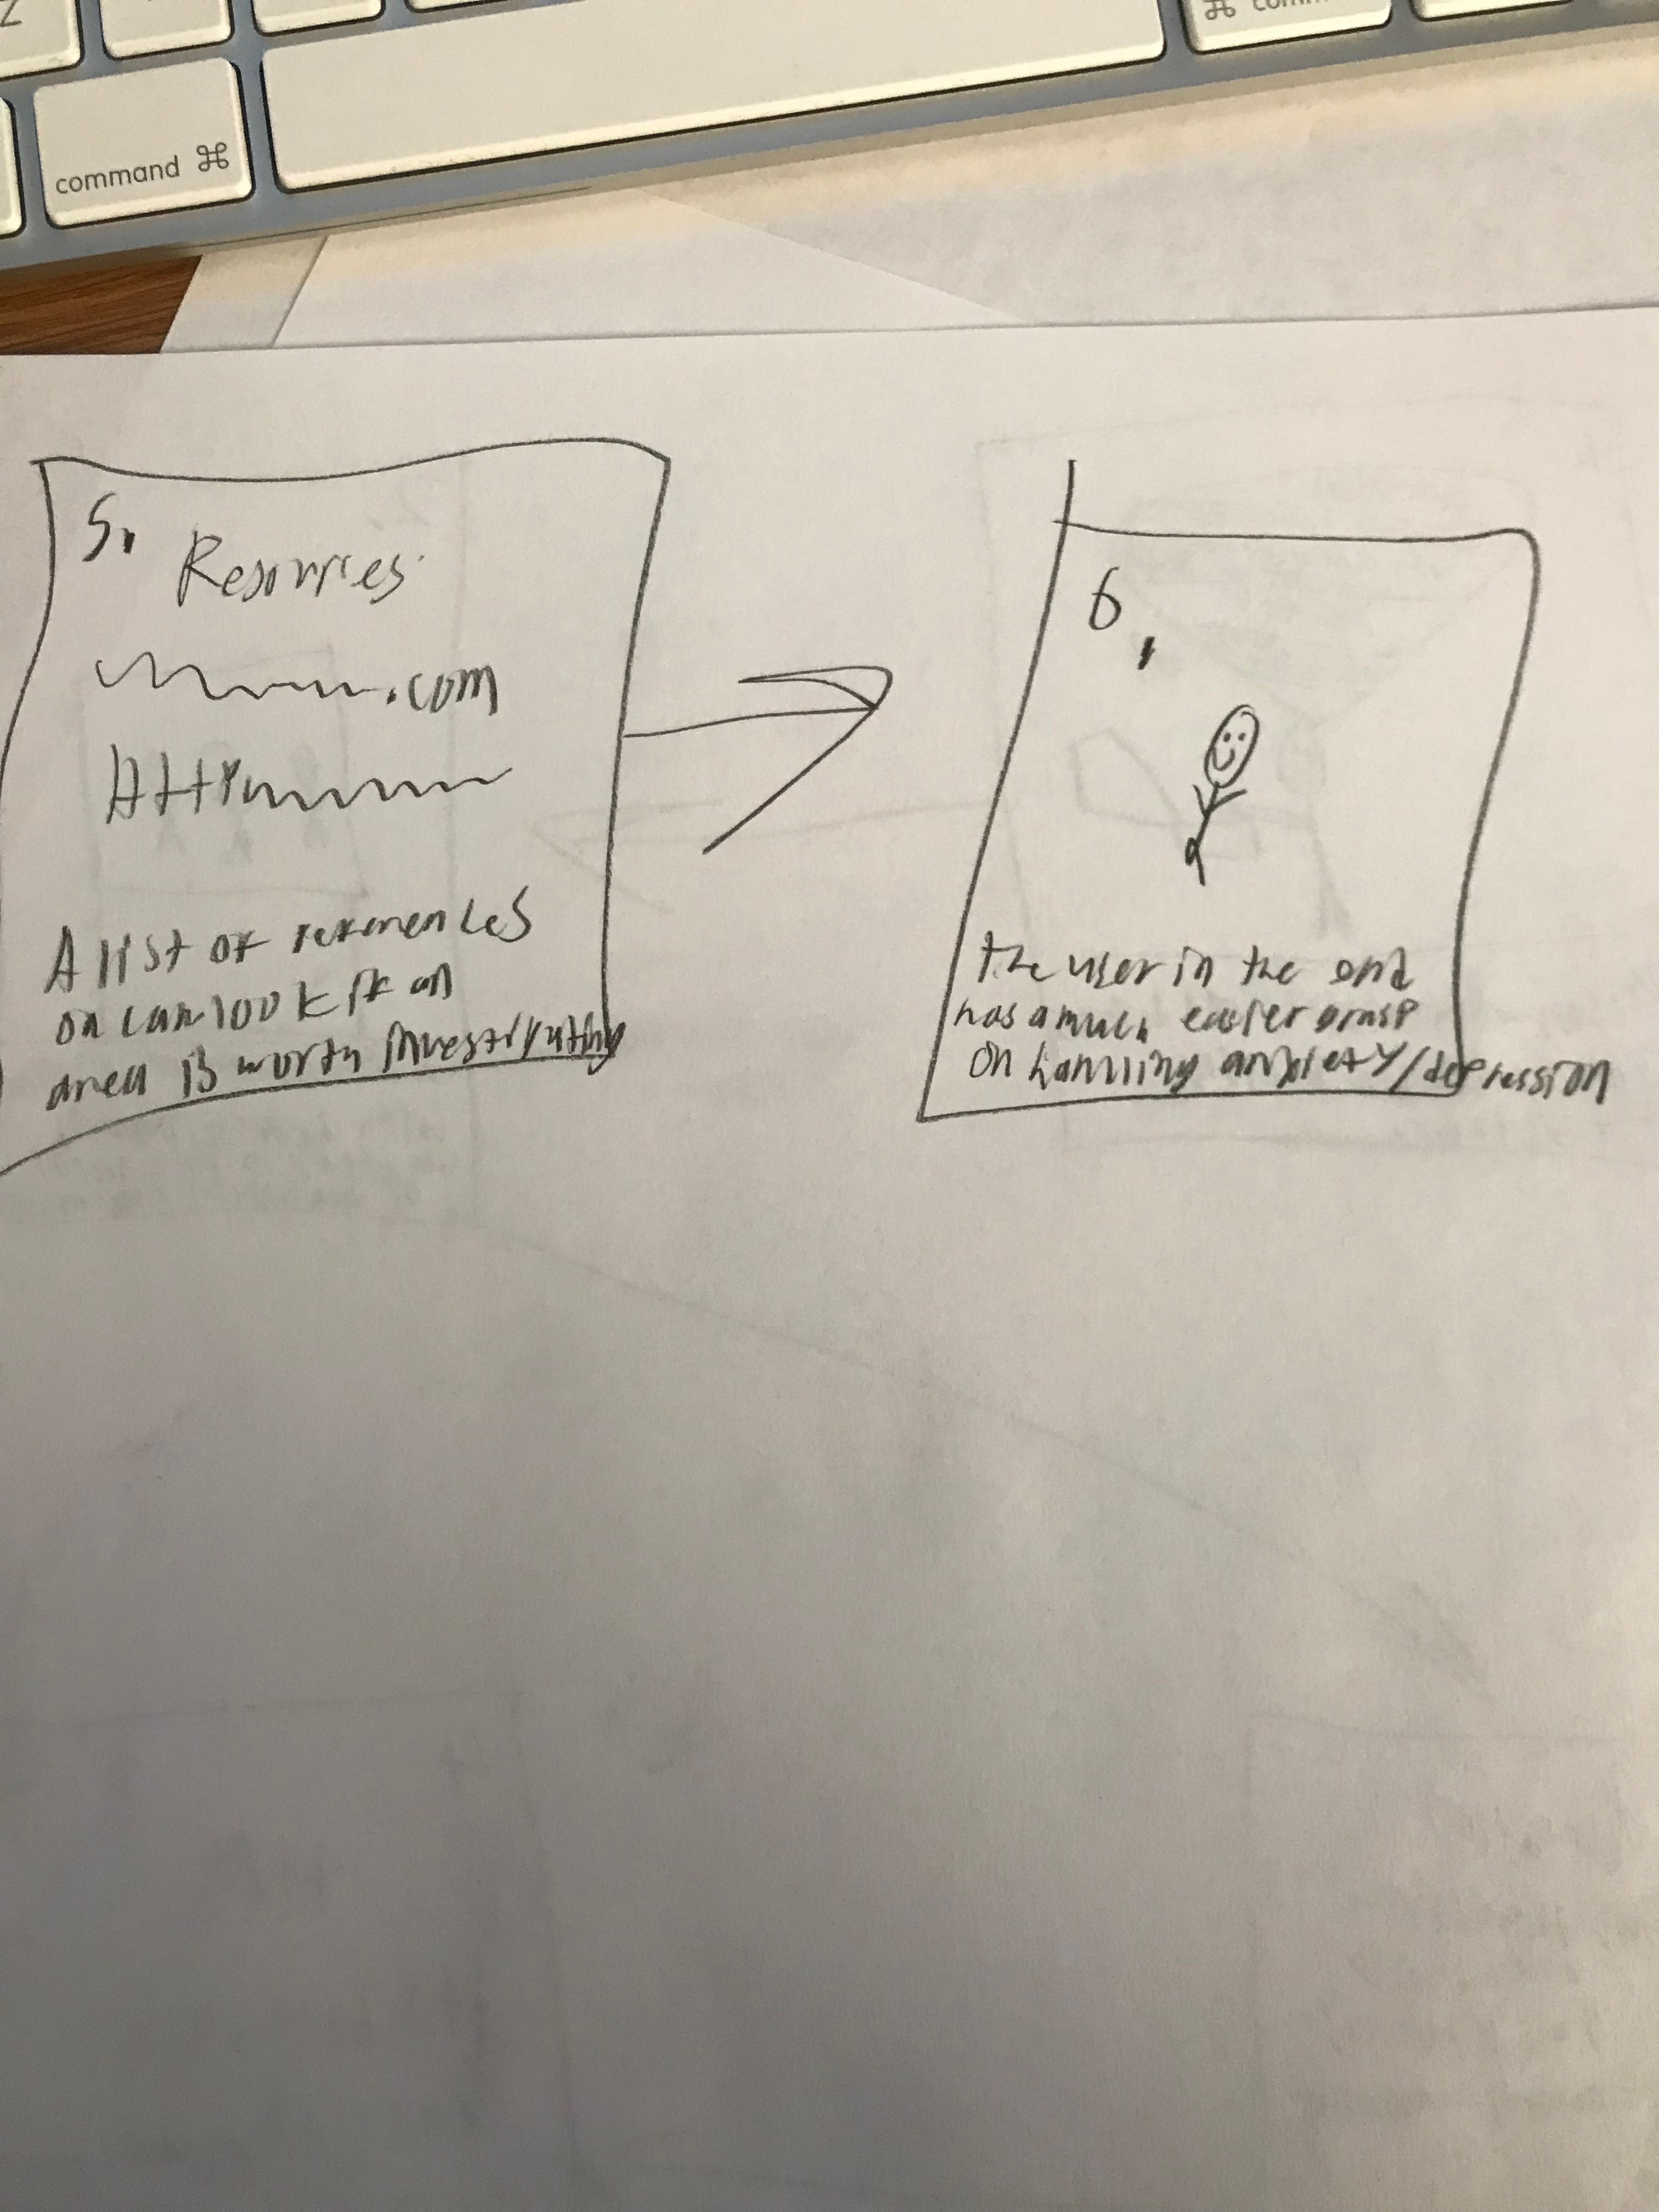 Z
⌘ comm
command ⌘
5.
Resources
.com
Http
A list of references
on can look if an
area is worth investigating
6.
the user in the end
has a much easier grasp
on handling anxiety/depression